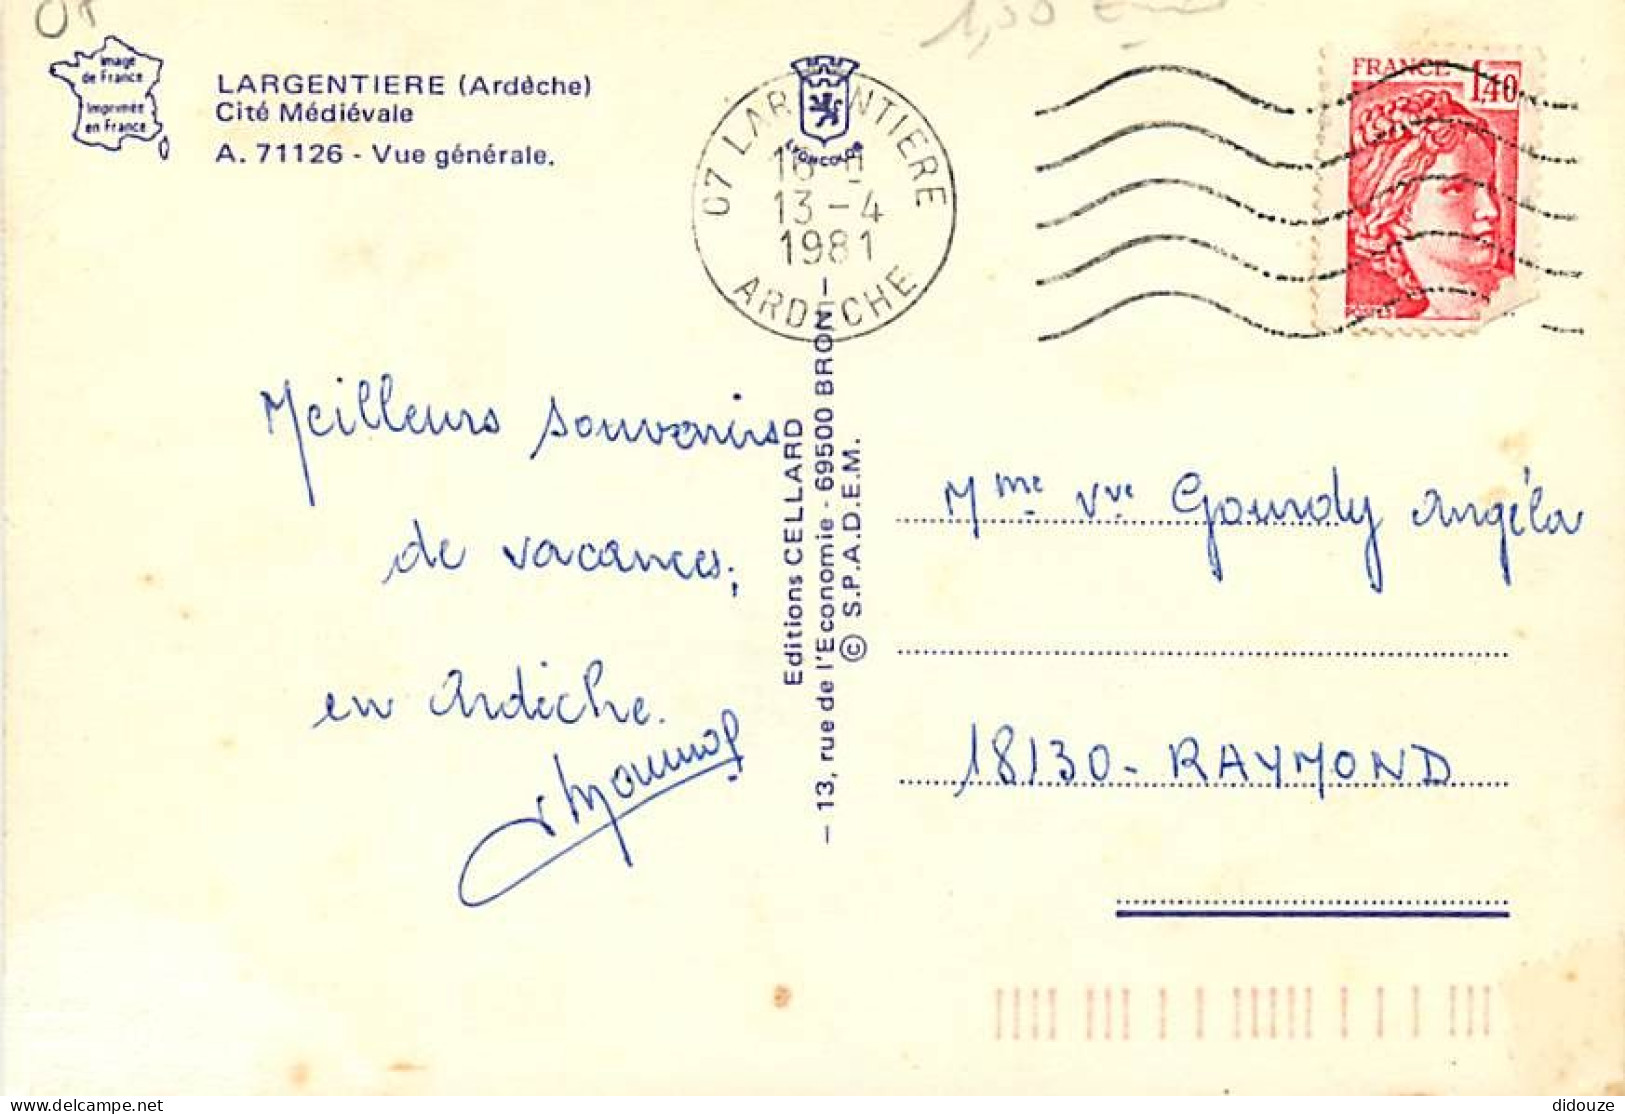 07
Image
de France
Imprimée
en France
LARGENTIERE (Ardèche)
Cité Médiévale
A. 71126 - Vue générale.
LYONCOLOR
07 LARGENTIERE
13-4
1981
ARDECHE
1,50
FRANCE 1,40
POSTES
Meilleurs souvenirs
de vacances,
en Ardèche.
Editions CELLARD
— 13, rue de l'Economie - 69500 BRON —
© S.P.A.D.E.M.
Mme Vve Gourdy Angéla
18130 - RAYMOND
https://www.delcampe.net
didouze